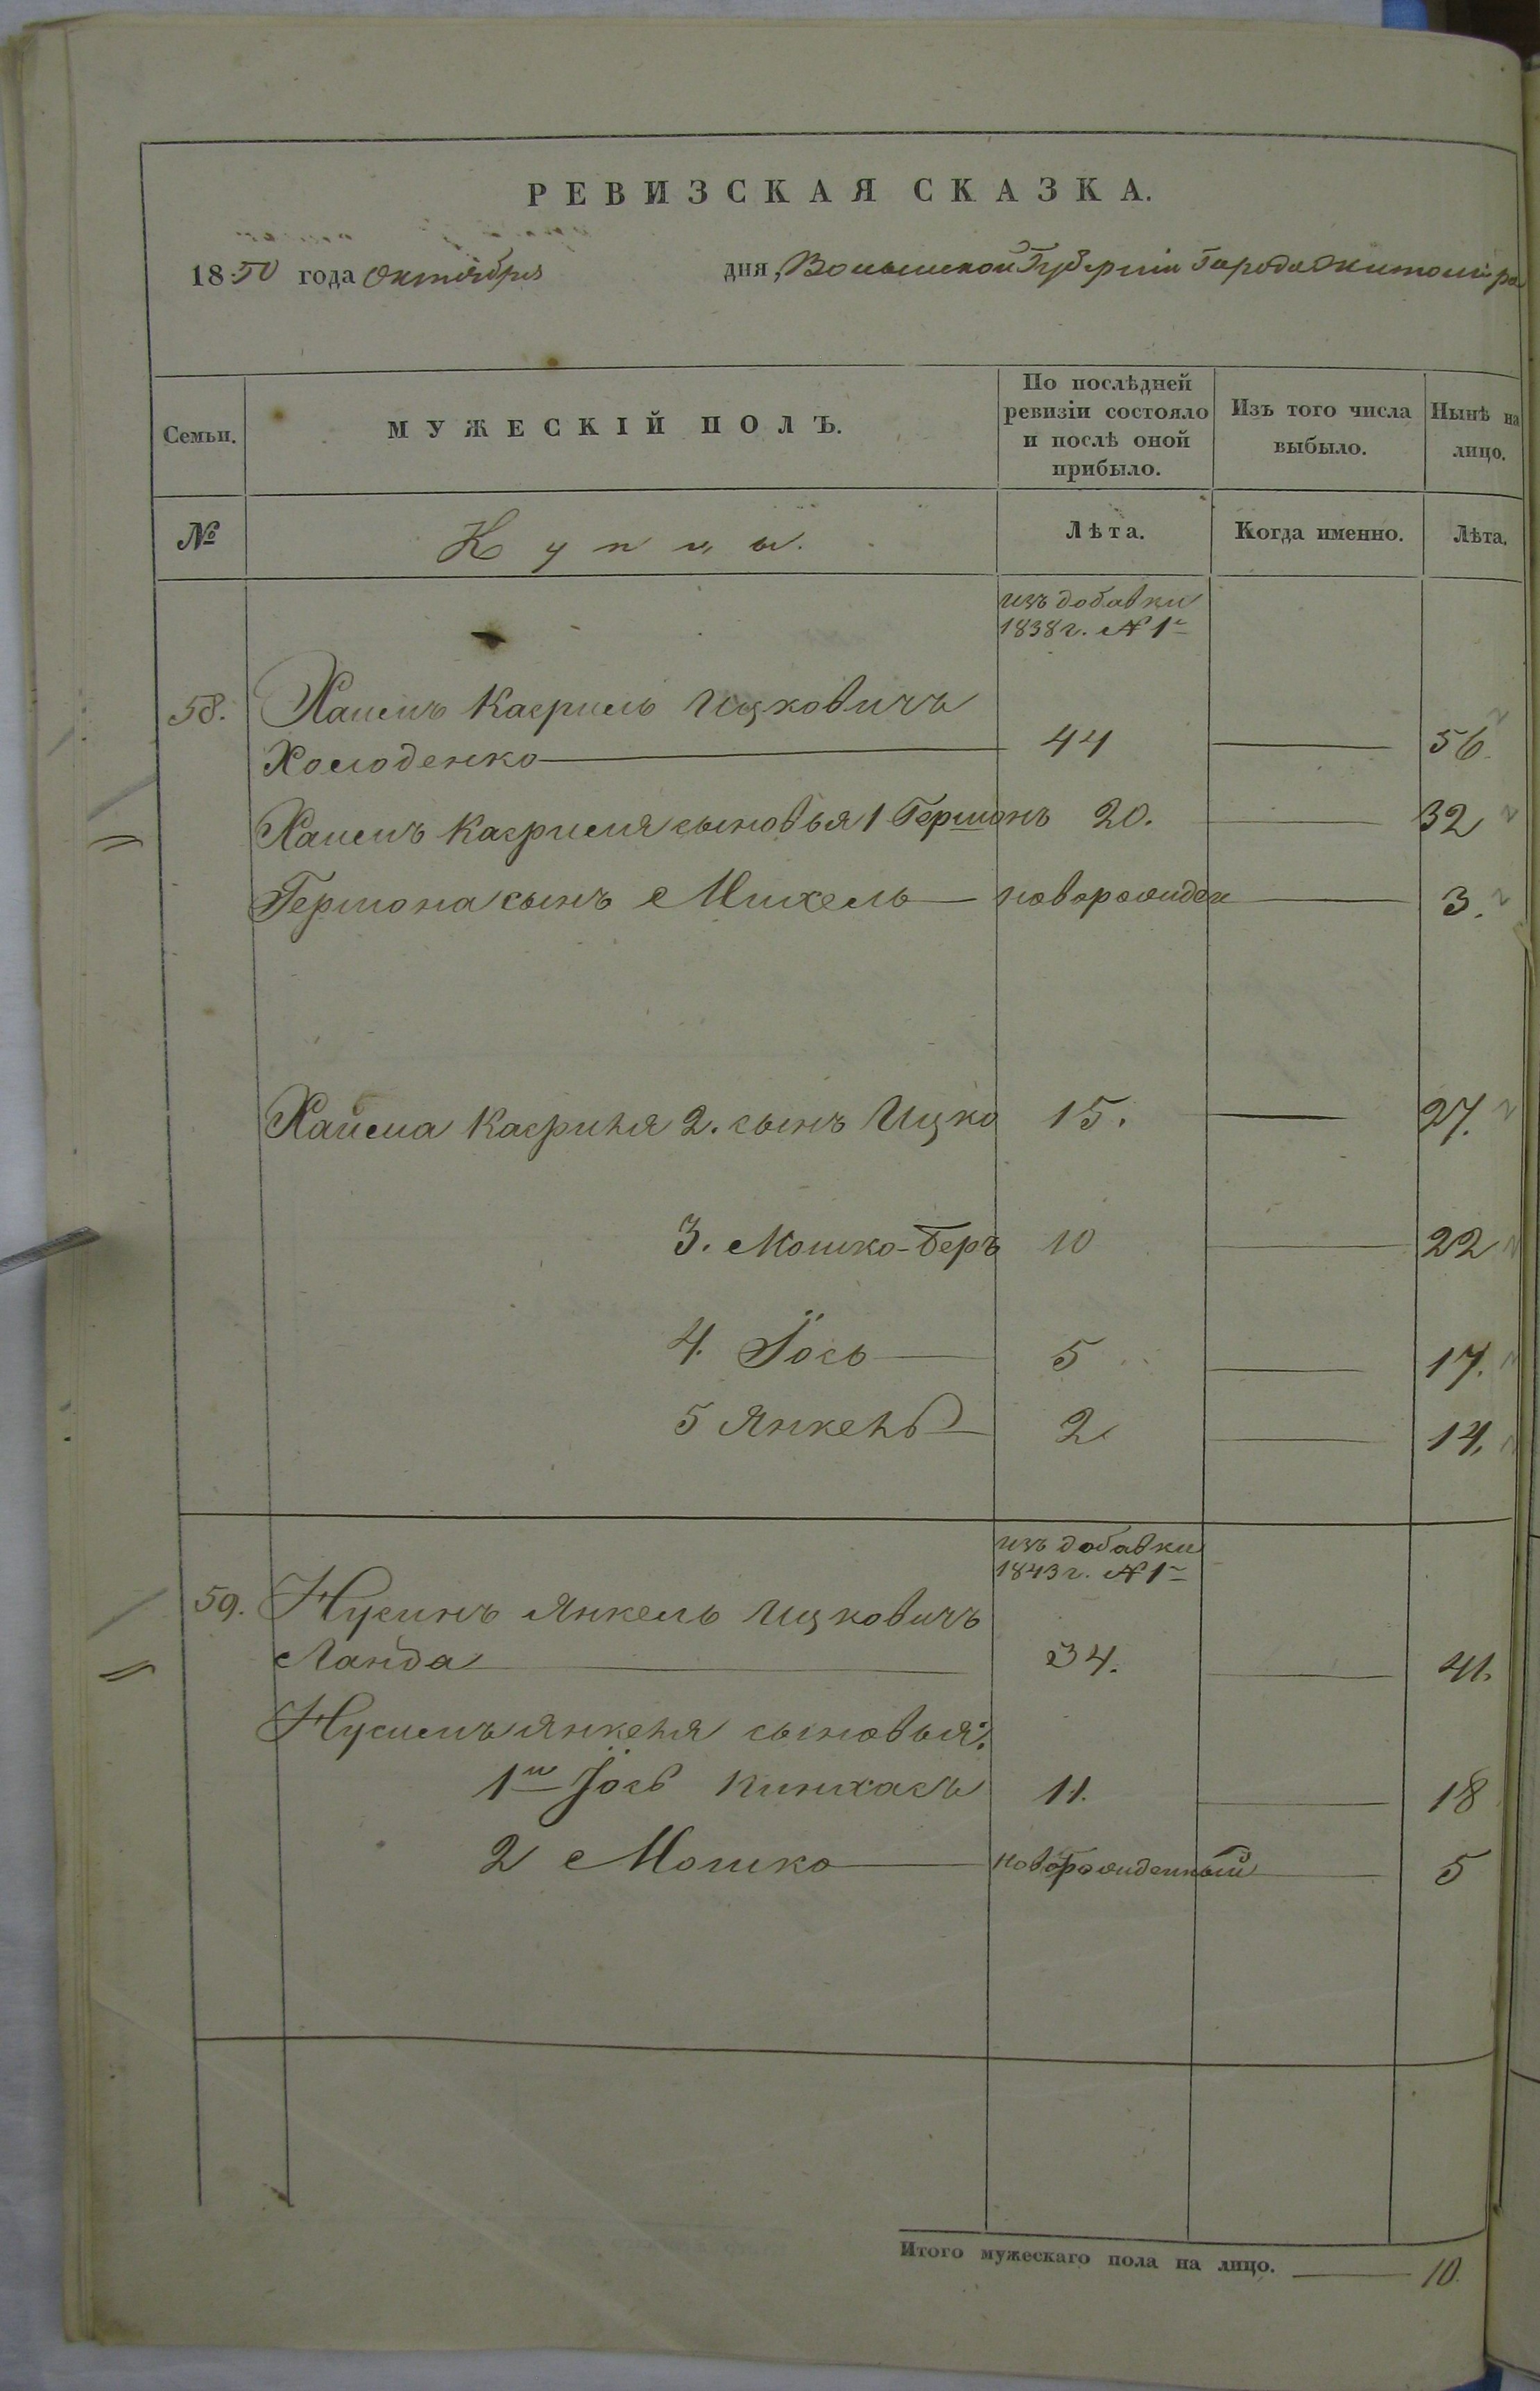 РЕВИЗСКАЯ СКАЗКА.
1850 года Октября дня, Волынской Губерніи Города Житоміра
Семьи.
МУЖЕСКІЙ ПОЛЪ.
По послѣдней
ревизіи состояло
и послѣ оной
прибыло.
Изъ того числа
выбыло.
Нынѣ на
лицо.
№
Купцы.
Лѣта.
Когда именно.
Лѣта.
изъ добавки
1838 г. № 1
58. Хаимъ Касриль Ицковичъ
Холоденко 44 56.
Хаимъ Касриля сыновья 1 Гершонъ 20. 32
Гершона сынъ Михель новорожден 3.
Хаима Касриля 2. сынъ Ицко 15. 27.
3. Мошко-Беръ 10 22
4. Іось 5 17.
5 Янкель 2 14.
изъ добавки
1843 г. № 1
59. Нусинъ Янкель Ицковичъ
Ланда 34. 41.
Нусимъ Янкеля сыновья:
1й Іось Пинхасъ 11. 18
2 Мошко новорожденный 5
Итого мужескаго пола на лицо. 10.